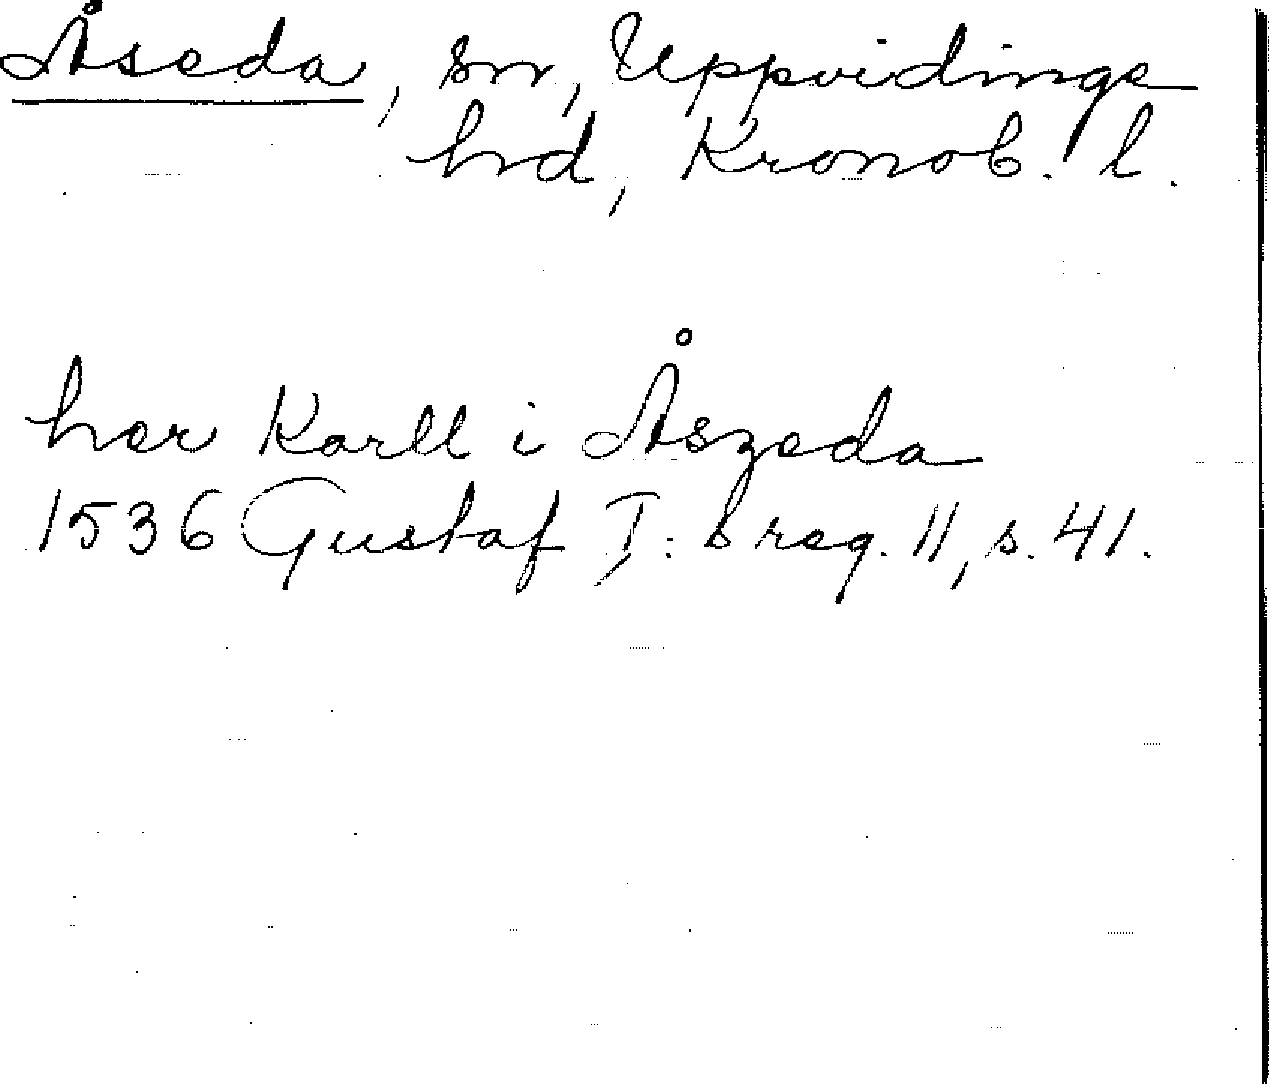 Åseda, sn, Uppvidinge
hrd, Kronob. l.
her Karll i Åszeda
1536 Gustaf I: s reg. 11, s. 41.